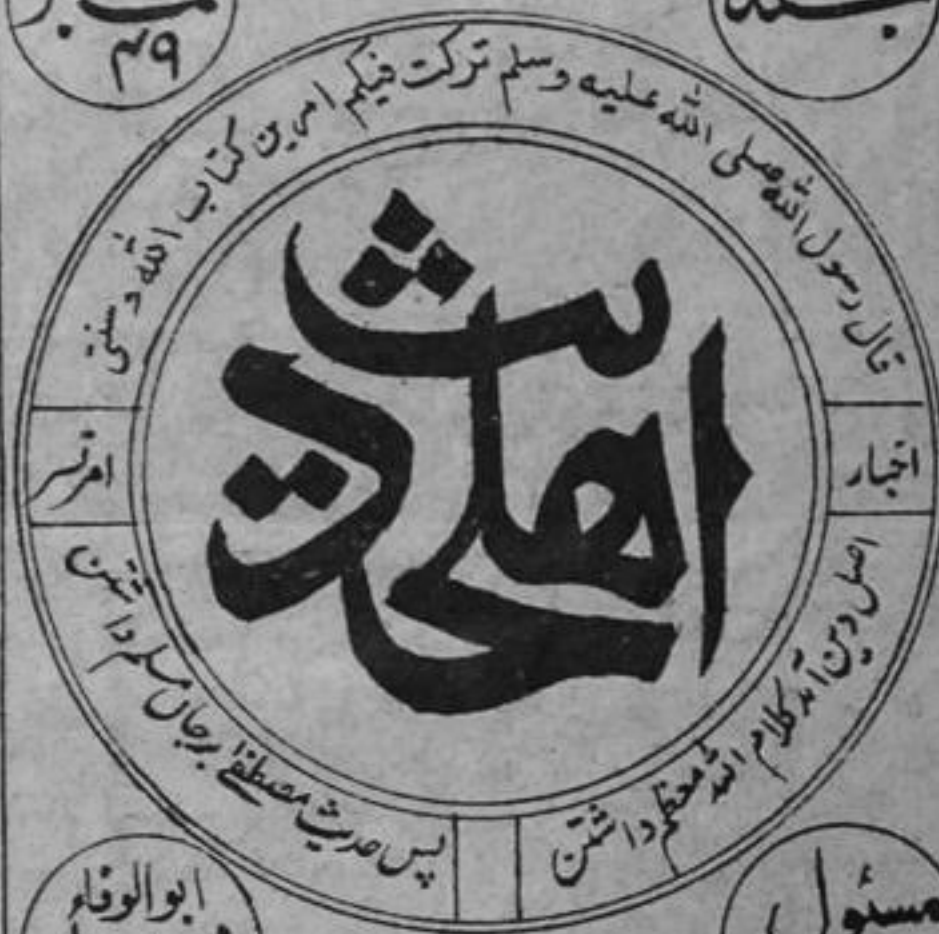 جلد
نمبر
۴۹
قال رسول اللہ صلی اللہ علیہ وسلم ترکت فیکم امرین کتاب اللہ و سنتی
اخبار
اھلحدیث
امرتسر
اصل دین آمد کلام اللہ معظم داشتن
پس حدیث مصطفےٰ برجاں مسلم داشتن
مسئول
ابوالوفاء